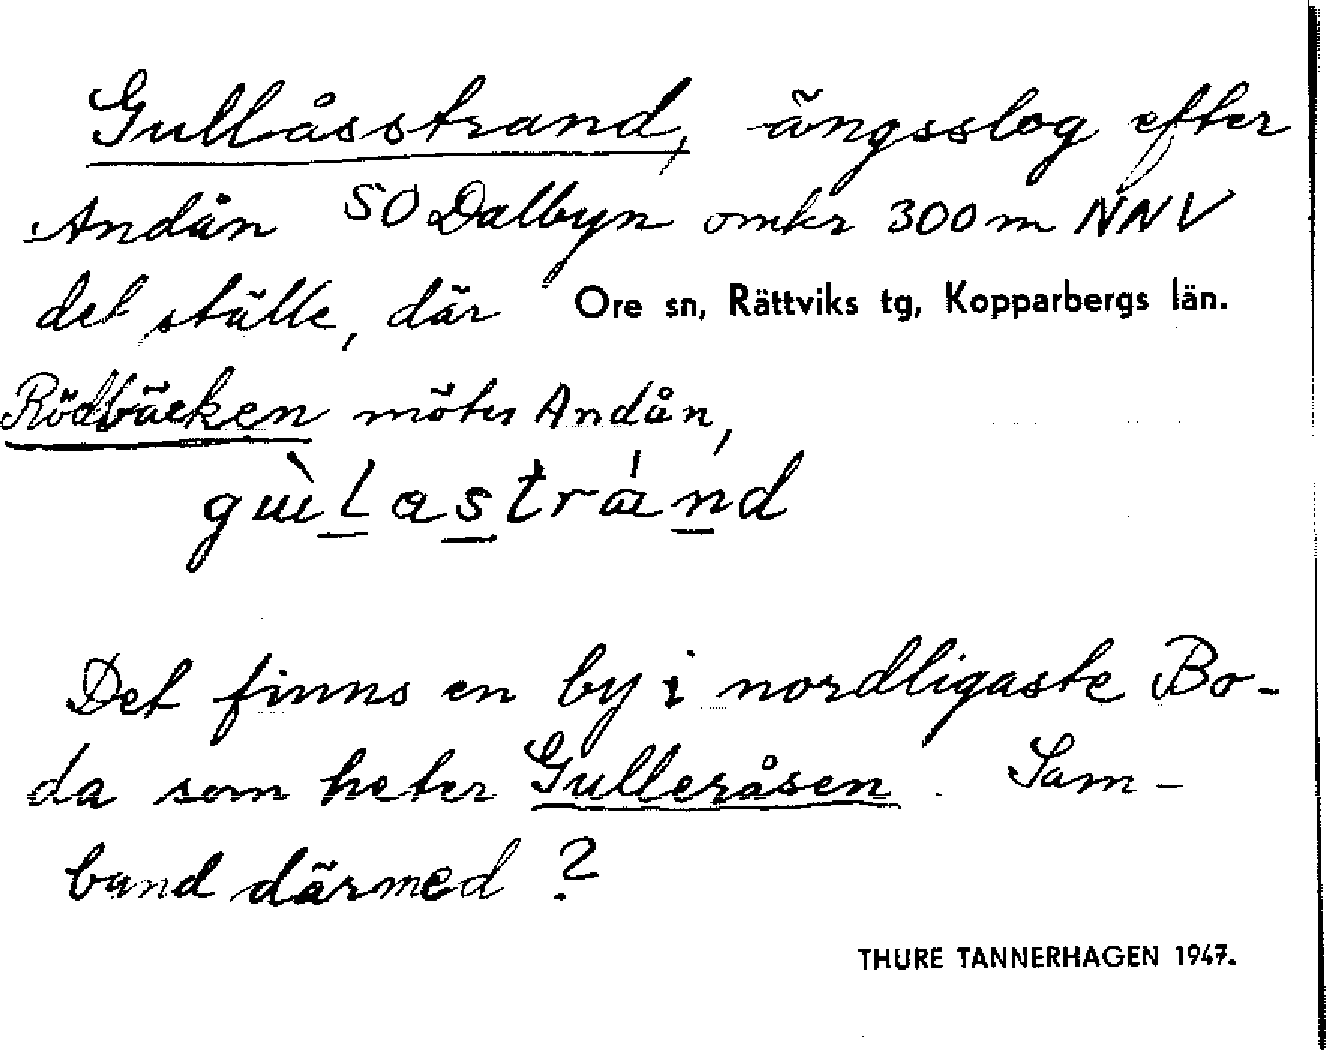 Gullåsstrand, ängsslog efter
Andån SO Dalbyn omkr 300 m NNV
det ställe, där Ore sn, Rättviks tg, Kopparbergs län.
Rödbäcken möter Andån,
Det finns en by i nordligaste Bo-
da som heter Gulleråsen. Sam-
band därmed?
THURE TANNERHAGEN 1947.